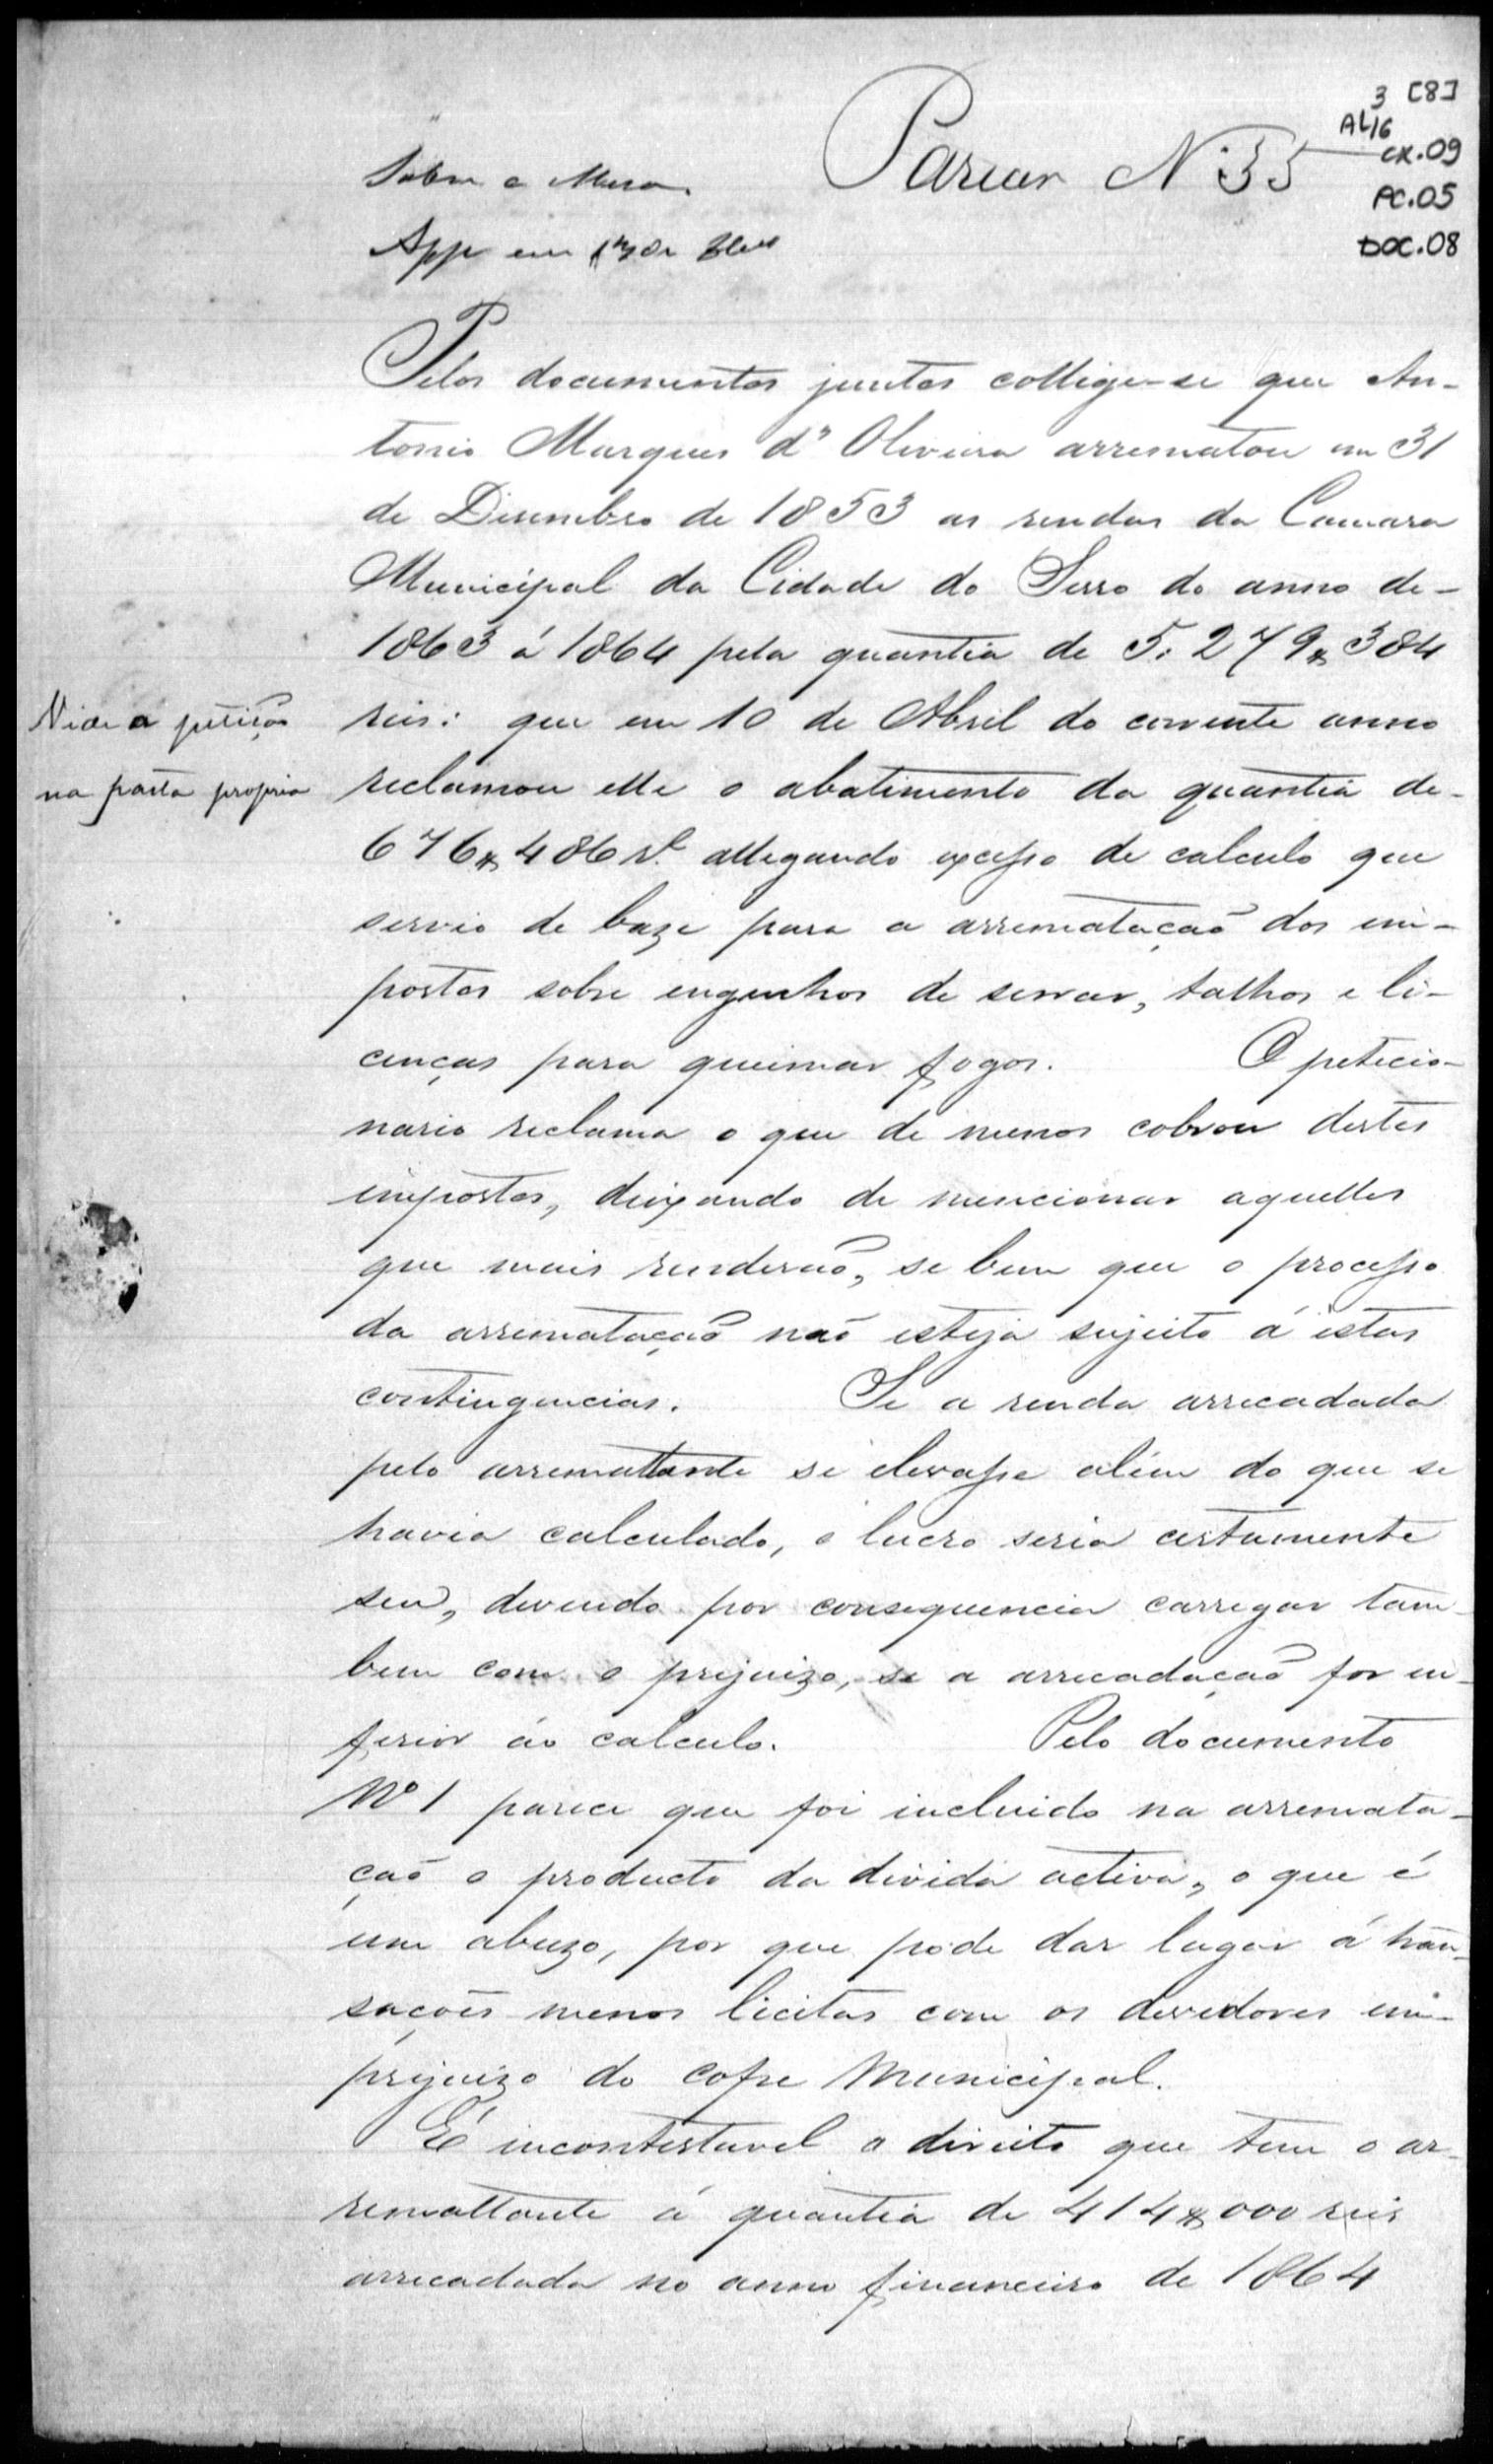 3 [8]
AL16
CX.09
PC.05
DOC.08
Parecer N. 35
Sobre a Mesa
App em
Pelos documentos juntos collige-se que An-
tonio Marques d'Oliveira arrematou em 31
de Desembro de 1853 as rendas da Camara
Municipal da Cidade do Serro do anno de-
1863 á 1864 pela quantia de 5:279$384
reis: que em 10 de Abril do corrente anno
reclamou elle o abatimento da quantia de-
676$486 rs. allegando excesso de calculo que
servio de baze para a arrematação dos im-
postos sobre engenhos de serrar, talhos e li-
cenças para queimar fogos. O peticio-
nario reclama o que de menos cobrou destes
impostos, deixando de mencionar aquelles
que mais renderão, se bem que o processo
da arrematação não esteja sujeito á estas
contingencias. Se a renda arrecadada
pelo arremattante se elevasse além do que se
havia calculado, o lucro seria certamente
seu, devendo por consequencia carregar tam-
bem com o prejuizo, se a arrecadação for in-
ferior ao calculo. Pelo documento
Nº 1 parece que foi incluido na arremata-
ção o producto da divida activa, o que é
um abuzo, por que pode dar lugar á tran-
sações menos licitas com os devedores em-
prejuizo do cofre Municipal.
É incontestavel o direito que tem o ar-
remattante á quantia de 414$000 reis
arrecadada no anno financeiro de 1864
Vide a petição
na pasta propria